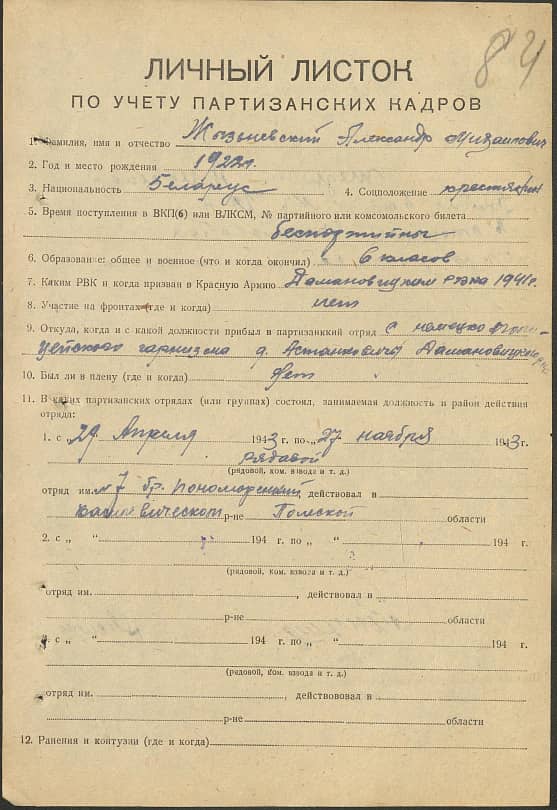 84
ЛИЧНЫЙ ЛИСТОК
ПО УЧЕТУ ПАРТИЗАНСКИХ КАДРОВ
1. Фамилия, имя и отчество Жызневский Александр Михаилович
2. Год и место рождения 1922г.
3. Национальность Беларус 4. Соцположение крестянин
5. Время поступления в ВКП(б) или ВЛКСМ, № партийного или комсомольского билета
беспартийны
6. Образование: общее и военное (что и когда окончил) 6 класов
7. Каким РВК и когда призван в Красную Армию Дамановицким 1941г.
8. Участие на фронтах (где и когда) нет
9. Откуда, когда и с какой должности прибыл в партизанский отряд с немецко
цейского гарнизона д. Астанковичы Дамановицкого
10. Был ли в плену (где и когда) Нет
11. В каких партизанских отрядах (или группах) состоял, занимаемая должность и район действия
отряда:
1. с „29 Апреля 1943 г. по „27 ноября 1943 г.
рядавой
(рядовой, ком. взвода и т. д.)
отряд им. №7 бр. Пономаренки действовал в
р-не Полеской области
2. с „ “ 194 г. по „ “ 194 г.
(рядовой, ком. взвода и т. д.)
отряд им. , действовал в
р-не области
3. с „ “ 194 г. по „ “ 194 г.
(рядовой, ком. взвода и т. д.)
отряд им. , действововал в
р-не области
12. Ранения и контузии (где и когда)